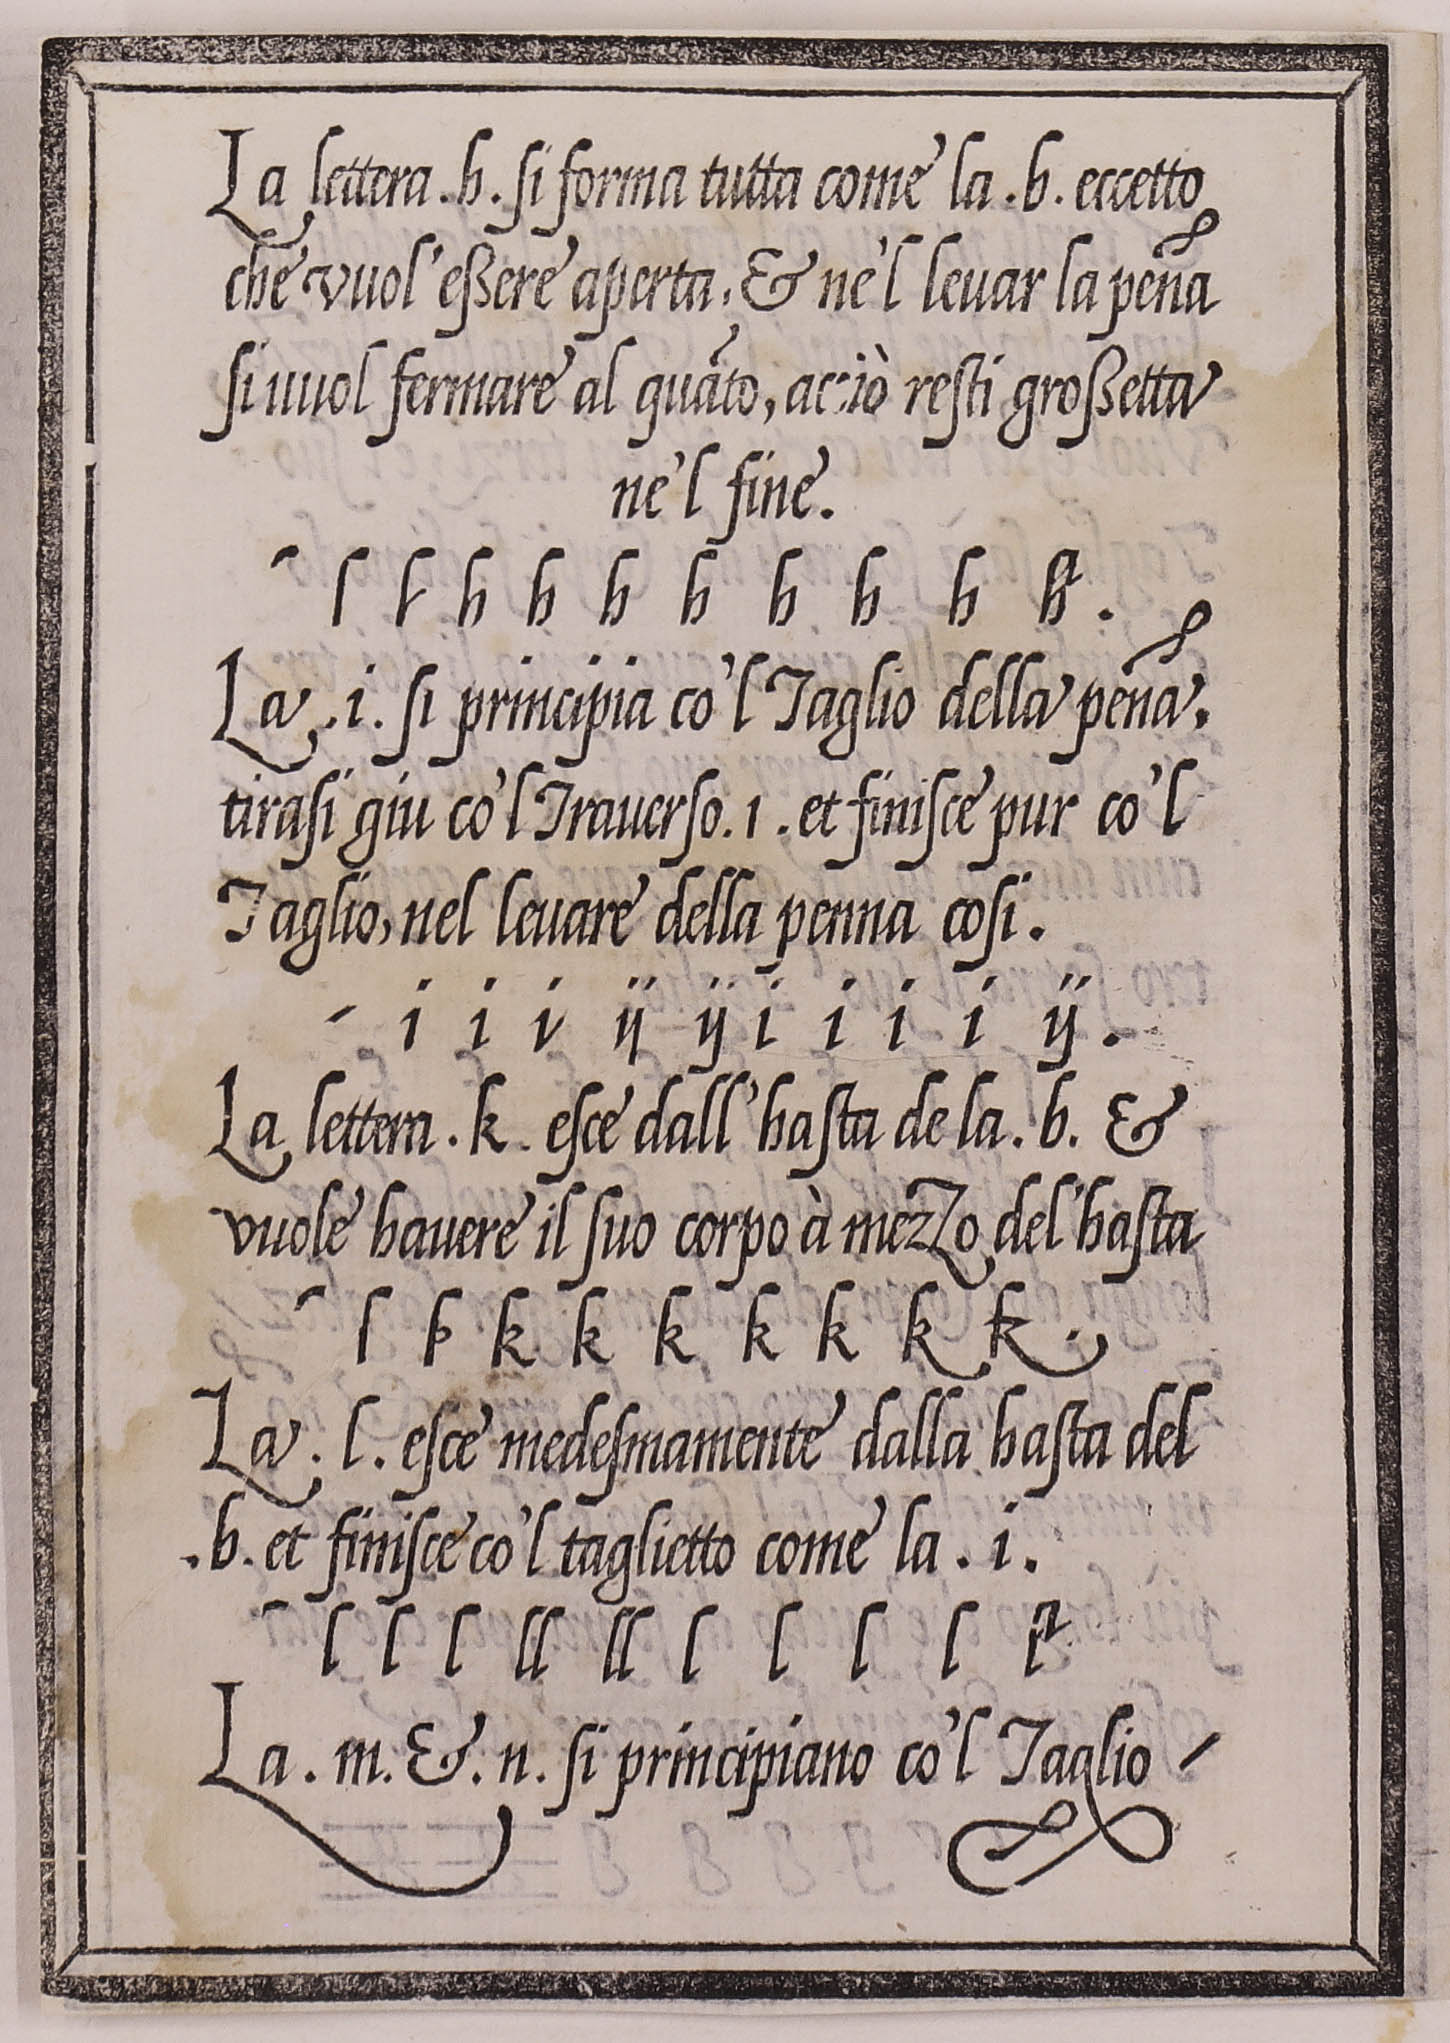 La lettera .h. si forma tutta come la .b. eccetto
che vuol' eßere aperta. & ne'l leuar la pēna
si uuol fermare al quāto, acciò resti großetta
ne'l fine.
ˊ l h h h h h h h h h h.
La .i. si principia co'l Taglio della pēna.
tirasi giu co'l Trauerso. ı . et finisce pur co'l
Taglio, nel leuare della penna cosi.
ˊ i i i ij ij i i i i ij.
La lettera .k. esce dall'hasta de la .b. &
vuole hauere il suo corpo à mezzo del'hasta
ˊ l k k k k k k k k .
La .l. esce medesmamente dalla hasta del
.b. et finisce co'l taglietto come la .i.
ˊ l l l ll ll l l l l l
La .m. &. n. si principiano co'l Taglio ⸍